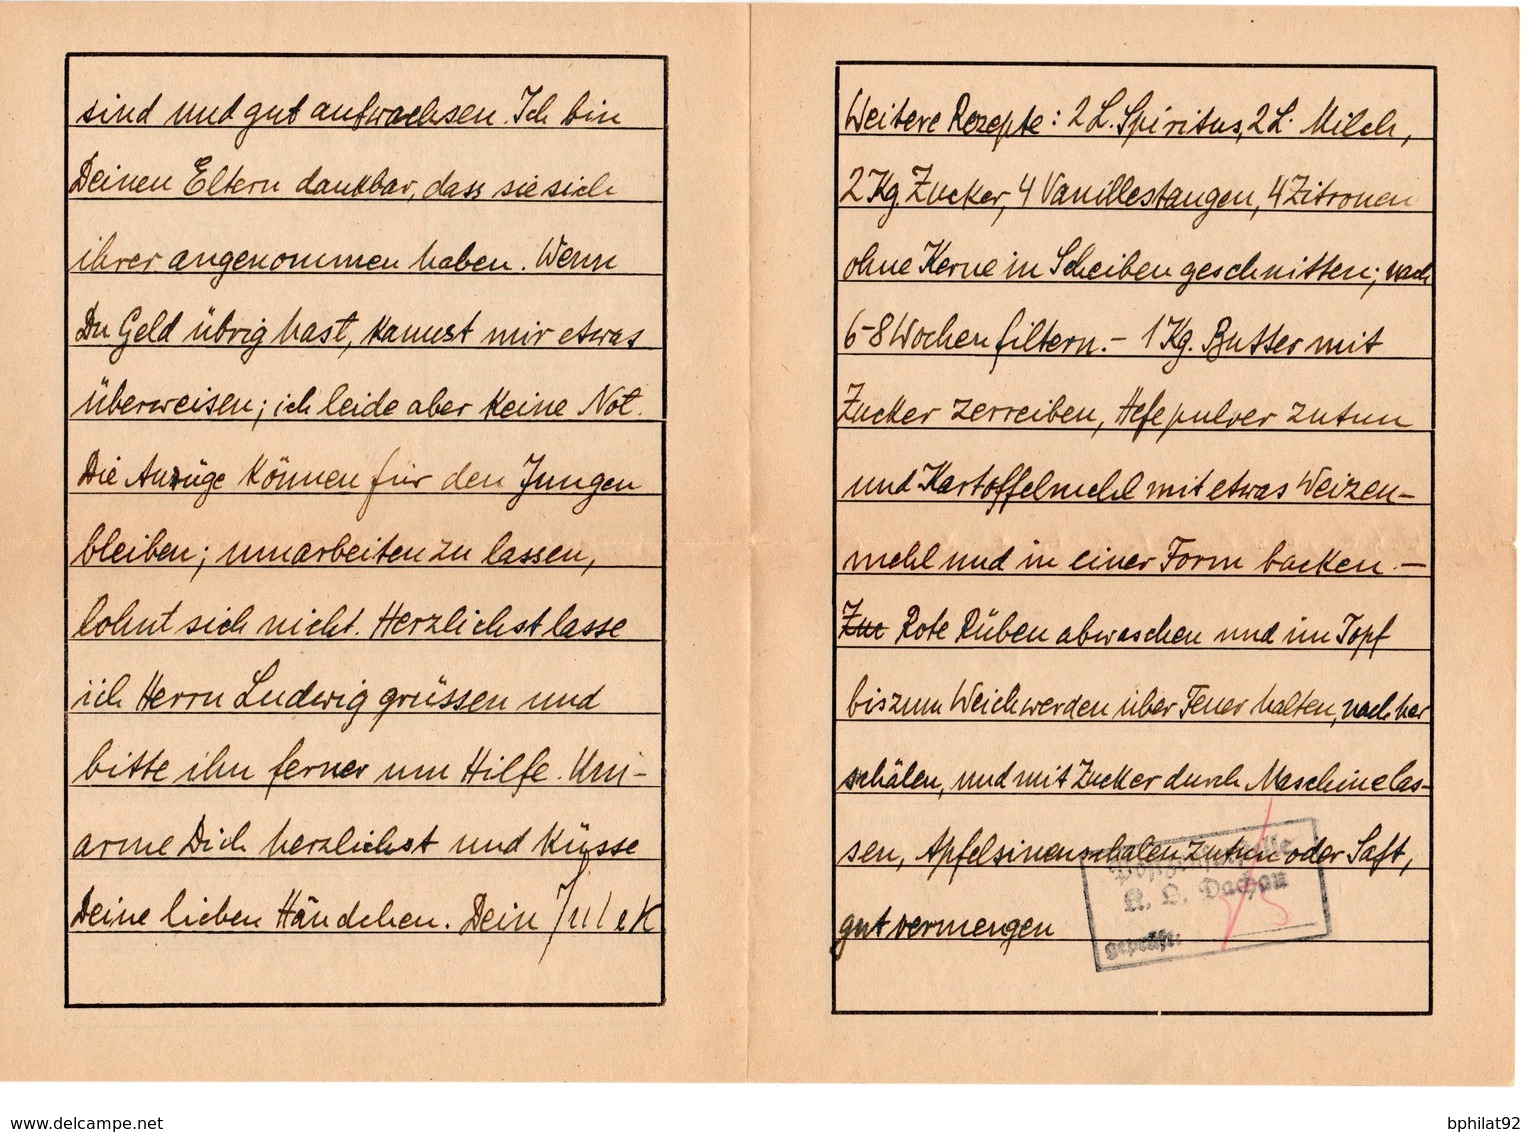 sind und gut aufwachsen. Ich bin
Deinen Eltern dankbar, dass sie sich
ihrer angenommen haben. Wenn
Du Geld übrig hast, kannst mir etwas
überweisen; ich leide aber keine Not.
Die Anzüge können für den Jungen
bleiben; umarbeiten zu lassen,
lohnt sich nicht. Herzlichst lasse
ich Herrn Ludwig grüssen und
bitte ihn ferner um Hilfe. Um-
arme Dich herzlichst und küsse
Deine lieben Händchen. Dein Julek
Weitere Rezepte: 2 L. Spiritus, 2 L. Milch,
2 Kg. Zucker, 4 Vanillestangen, 4 Zitronen
ohne Kerne in Scheiben geschnitten; nach
6-8 Wochen filtern. - 1 Kg. Butter mit
Zucker zerreiben, Hefepulver zutun
und Kartoffelmehl mit etwas Weizen-
mehl und in einer Form backen. -
Rote Rüben abwaschen und im Topf
bis zum Weichwerden über Feuer halten, nachher
schälen, und mit Zucker durch Maschine las-
sen, Apfelsinenschalen zutun oder Saft,
gut vermengen
Postzensurstelle
K. L. Dachau
geprüft:
www.delcampe.net
bphilat92